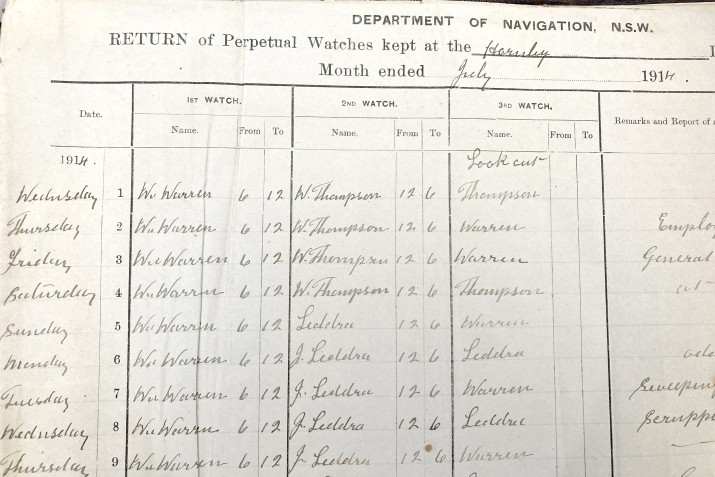 DEPARTMENT OF NAVIGATION, N.S.W.
RETURN of Perpetual Watches kept at the Hornby
Month ended July 1914.
Date. 1ST WATCH. 2ND WATCH. 3RD WATCH. Remarks and Report of
Name. From To Name. From To Name. From To
1914. Look out
Wednusday 1 Wm Warren 6 12 W. Thampson 12 6 Thompson
Thursday 2 Wm Warren 6 12 W. Thompson 12 6 Warren Employ
Friday 3 Wm Warren 6 12 W. Thompson 12 6 Warren General
Saturday 4 Wm Warren 6 12 W. Thampson 12 6 Thompson at
Sunday 5 Wm Warren 6 12 Leddra 12 6 Warren
Monday 6 Wm Warren 6 12 J. Leddra 12 6 Leddra
Tuesday 7 Wm Warren 6 12 J. Leddra 12 6 Warren Sweeping
Wednusday 8 Wm Warren 6 12 J. Leddra 12 6 Leddra
Thursday 9 Wm Warren 6 12 J. Leddra 12 6 Warren